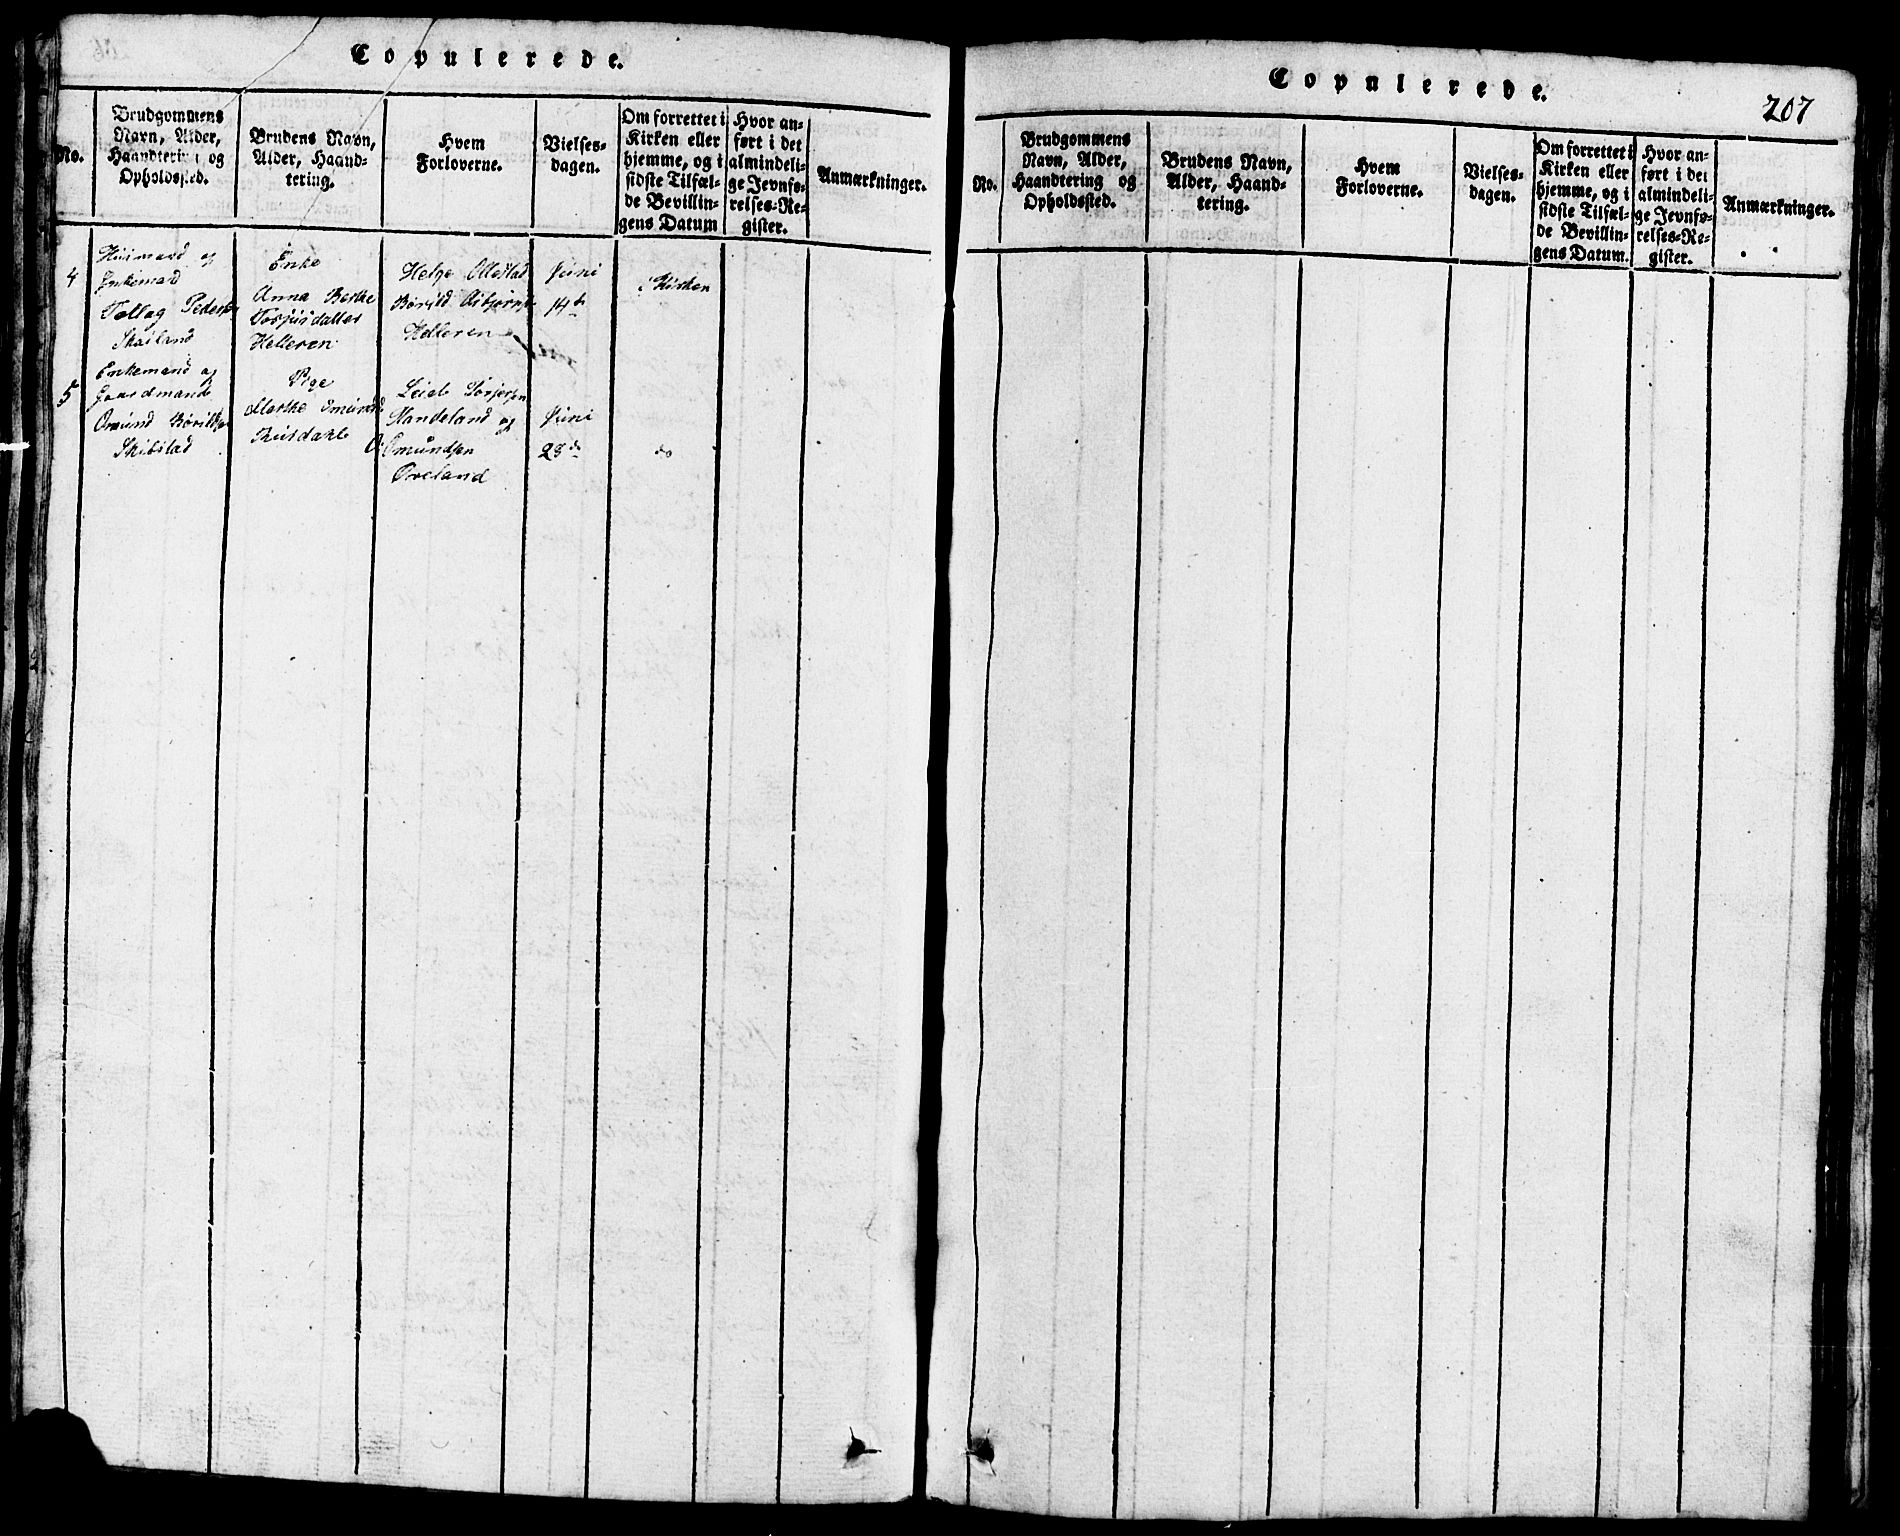 Copulerede.
No.
Brudgommens
Navn, Alder,
Haandtering og
Opholdssted.
Brudens Navn,
Alder, Haand-
tering.
Hvem
Forloverne.
Vielses-
dagen.
Om forrettet i
Kirken eller
hjemme, og i
sidste Tilfæl-
de Bevillin-
gens Datum
Hvor an-
ført i det
almindeli-
ge Jevnfø-
relses-Re-
gister.
Anmærkninger.
4
Huusmand og
Enkemand
Tollag Peders
Skailand
Enke
Anna Berthe
Torjusdatter
Helleren
Helge Ollestad
Børild Asbjørns
Helleren
Juni
14de
i Kirken
5
Enkemand og
Gaardmand
Omund Børilds
Skibstad
Pige
Marthe Omunds
Rusdahl
Leiel Torjersen
Mandeland og
Omundsen
Øveland
Juni
28de
do
Copulerede.
207
No.
Brudgommens
Navn, Alder,
Haandtering og
Opholdssted.
Brudens Navn,
Alder, Haand-
tering.
Hvem
Forloverne.
Vielses-
dagen.
Om forrettet i
Kirken eller
hjemme, og i
sidste Tilfæl-
de Bevillin-
gens Datum.
Hvor an-
ført i det
almindeli-
ge Jevnfø-
relses-Re-
gister.
Anmærkninger.